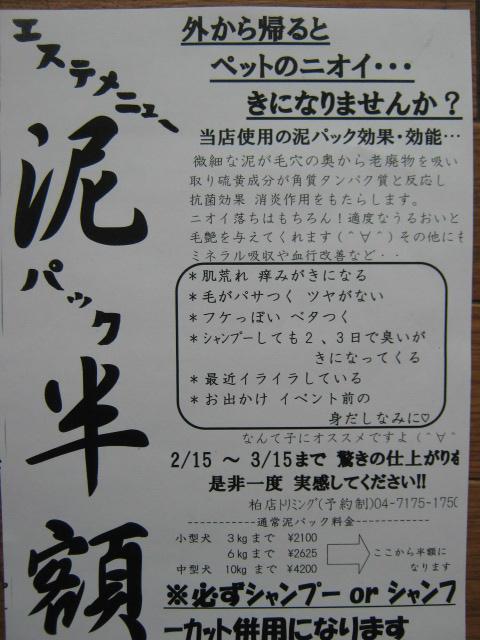 エステメニュー
泥パック半額
外から帰ると
ペットのニオイ・・・
きになりませんか？
当店使用の泥パック効果・効能…
微細な泥が毛穴の奥から老廃物を吸い
取り硫黄成分が角質タンパク質と反応し
抗菌効果 消炎作用をもたらします。
ニオイ落ちはもちろん！適度なうるおいと
毛艶を与えてくれます(＾∀＾)その他にも
ミネラル吸収や血行改善など・・
＊肌荒れ 痒みがきになる
＊毛がパサつく ツヤがない
＊フケっぽい ベタつく
＊シャンプーしても２、３日で臭いが
きになってくる
＊最近イライラしている
＊お出かけ イベント前の
身だしなみに♡
なんて子にオススメですよ(＾∀＾
2/15 ～ 3/15まで 驚きの仕上がりを
是非一度 実感してください!!
柏店トリミング(予約制)04-7175-1750
------------通常泥パック料金------------
小型犬 3kgまで ¥2100
6kgまで ¥2625
中型犬 10kgまで ¥4200
ここから半額に
なります
※必ずシャンプー or シャンプ
ーカット併用になります